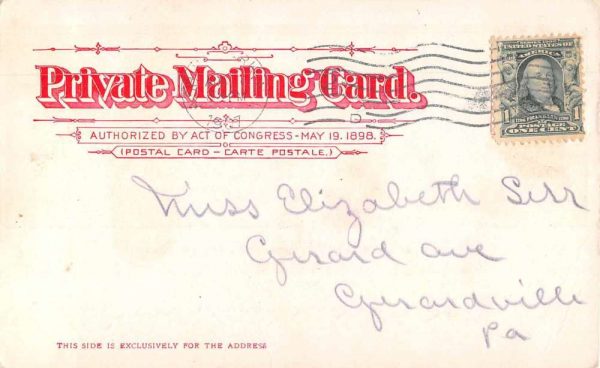 Private Mailing Card.
AUTHORIZED BY ACT OF CONGRESS - MAY 19, 1898.
(POSTAL CARD - CARTE POSTALE.)
D
UNITED STATES OF
AMERICA
POSTAGE
1 ONE CENT 1
Miss Elizabeth Serr
Gerard ave
Gerardville
Pa
THIS SIDE IS EXCLUSIVELY FOR THE ADDRESS